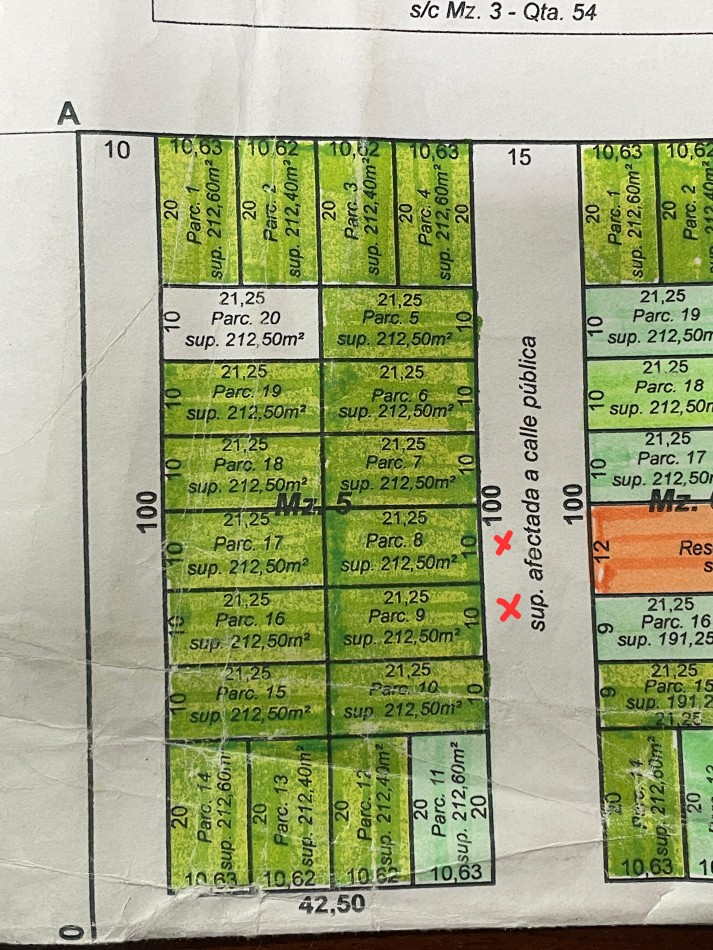 s/c Mz. 3 - Qta. 54
A
10
10,63
20
Parc. 1
sup. 212,60m²
10,62
20
Parc. 2
sup. 212,40m²
10,62
20
Parc. 3
sup. 212,40m²
10,63
20
Parc. 4
sup. 212,60m²
20
15
10,63
20
Parc. 1
sup. 212,60m²
10,62
20
Parc. 2
212,40m²
21,25
10
Parc. 20
sup. 212,50m²
21,25
Parc. 5
10
sup. 212,50m²
21,25
Parc. 19
10
sup. 212,50m
21,25
10
Parc. 19
sup. 212,50m²
21,25
Parc. 6
10
sup. 212,50m²
21.25
Parc. 18
10
sup. 212,50m
21,25
10
Parc. 18
sup. 212,50m²
21,25
Parc. 7
10
sup. 212,50m²
21,25
10
Parc. 17
sup. 212,50m
100
Mz. 5
100
sup. afectada a calle pública
100
Mz.
21,25
10
Parc. 17
sup. 212,50m²
21,25
Parc. 8
10
sup. 212,50m²
12
Res
s
21,25
10
Parc. 16
sup. 212,50m²
21,25
Parc. 9
10
sup. 212,50m²
21,25
9
Parc. 16
sup. 191,25
21,25
10
Parc. 15
sup. 212,50m²
21,25
Parc. 10
10
sup. 212,50m²
21,25
9
Parc. 15
sup. 191,2
21,25
20
Parc. 14
sup. 212,60m²
10,63
20
Parc. 13
sup. 212,40m²
10,62
20
Parc. 12
sup. 212,40m²
10,62
20
Parc. 11
sup. 212,60m²
20
10,63
20
Parc. 14
sup. 212,60m²
10,63
20
42,50
0